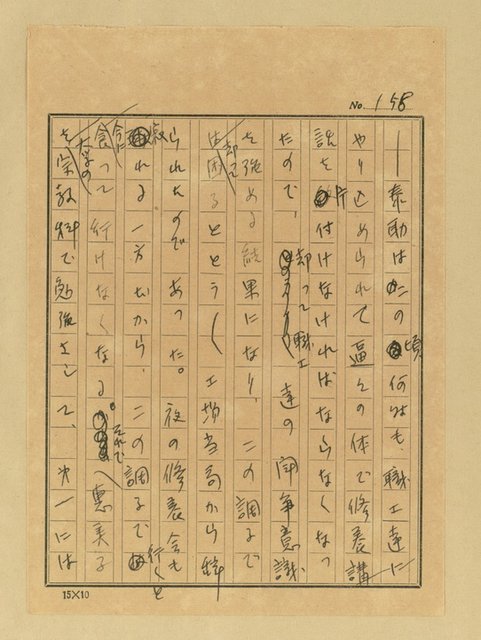 No. 158
―泰勳はこの頃何時も、職工達に
やり込められて逼々の体で修養講
話を片付けなければならなくなっ
たので、却って職工達の闘争意識
を強める結果になり、この調子で
は困るととう〱工場当局から
られたのであった。夜の修養会も
れる一方だから、この調子で行くと
食って行けなくなる。それで、恵美子
を大学の宗教科で勉強さして、オ一には
15×10